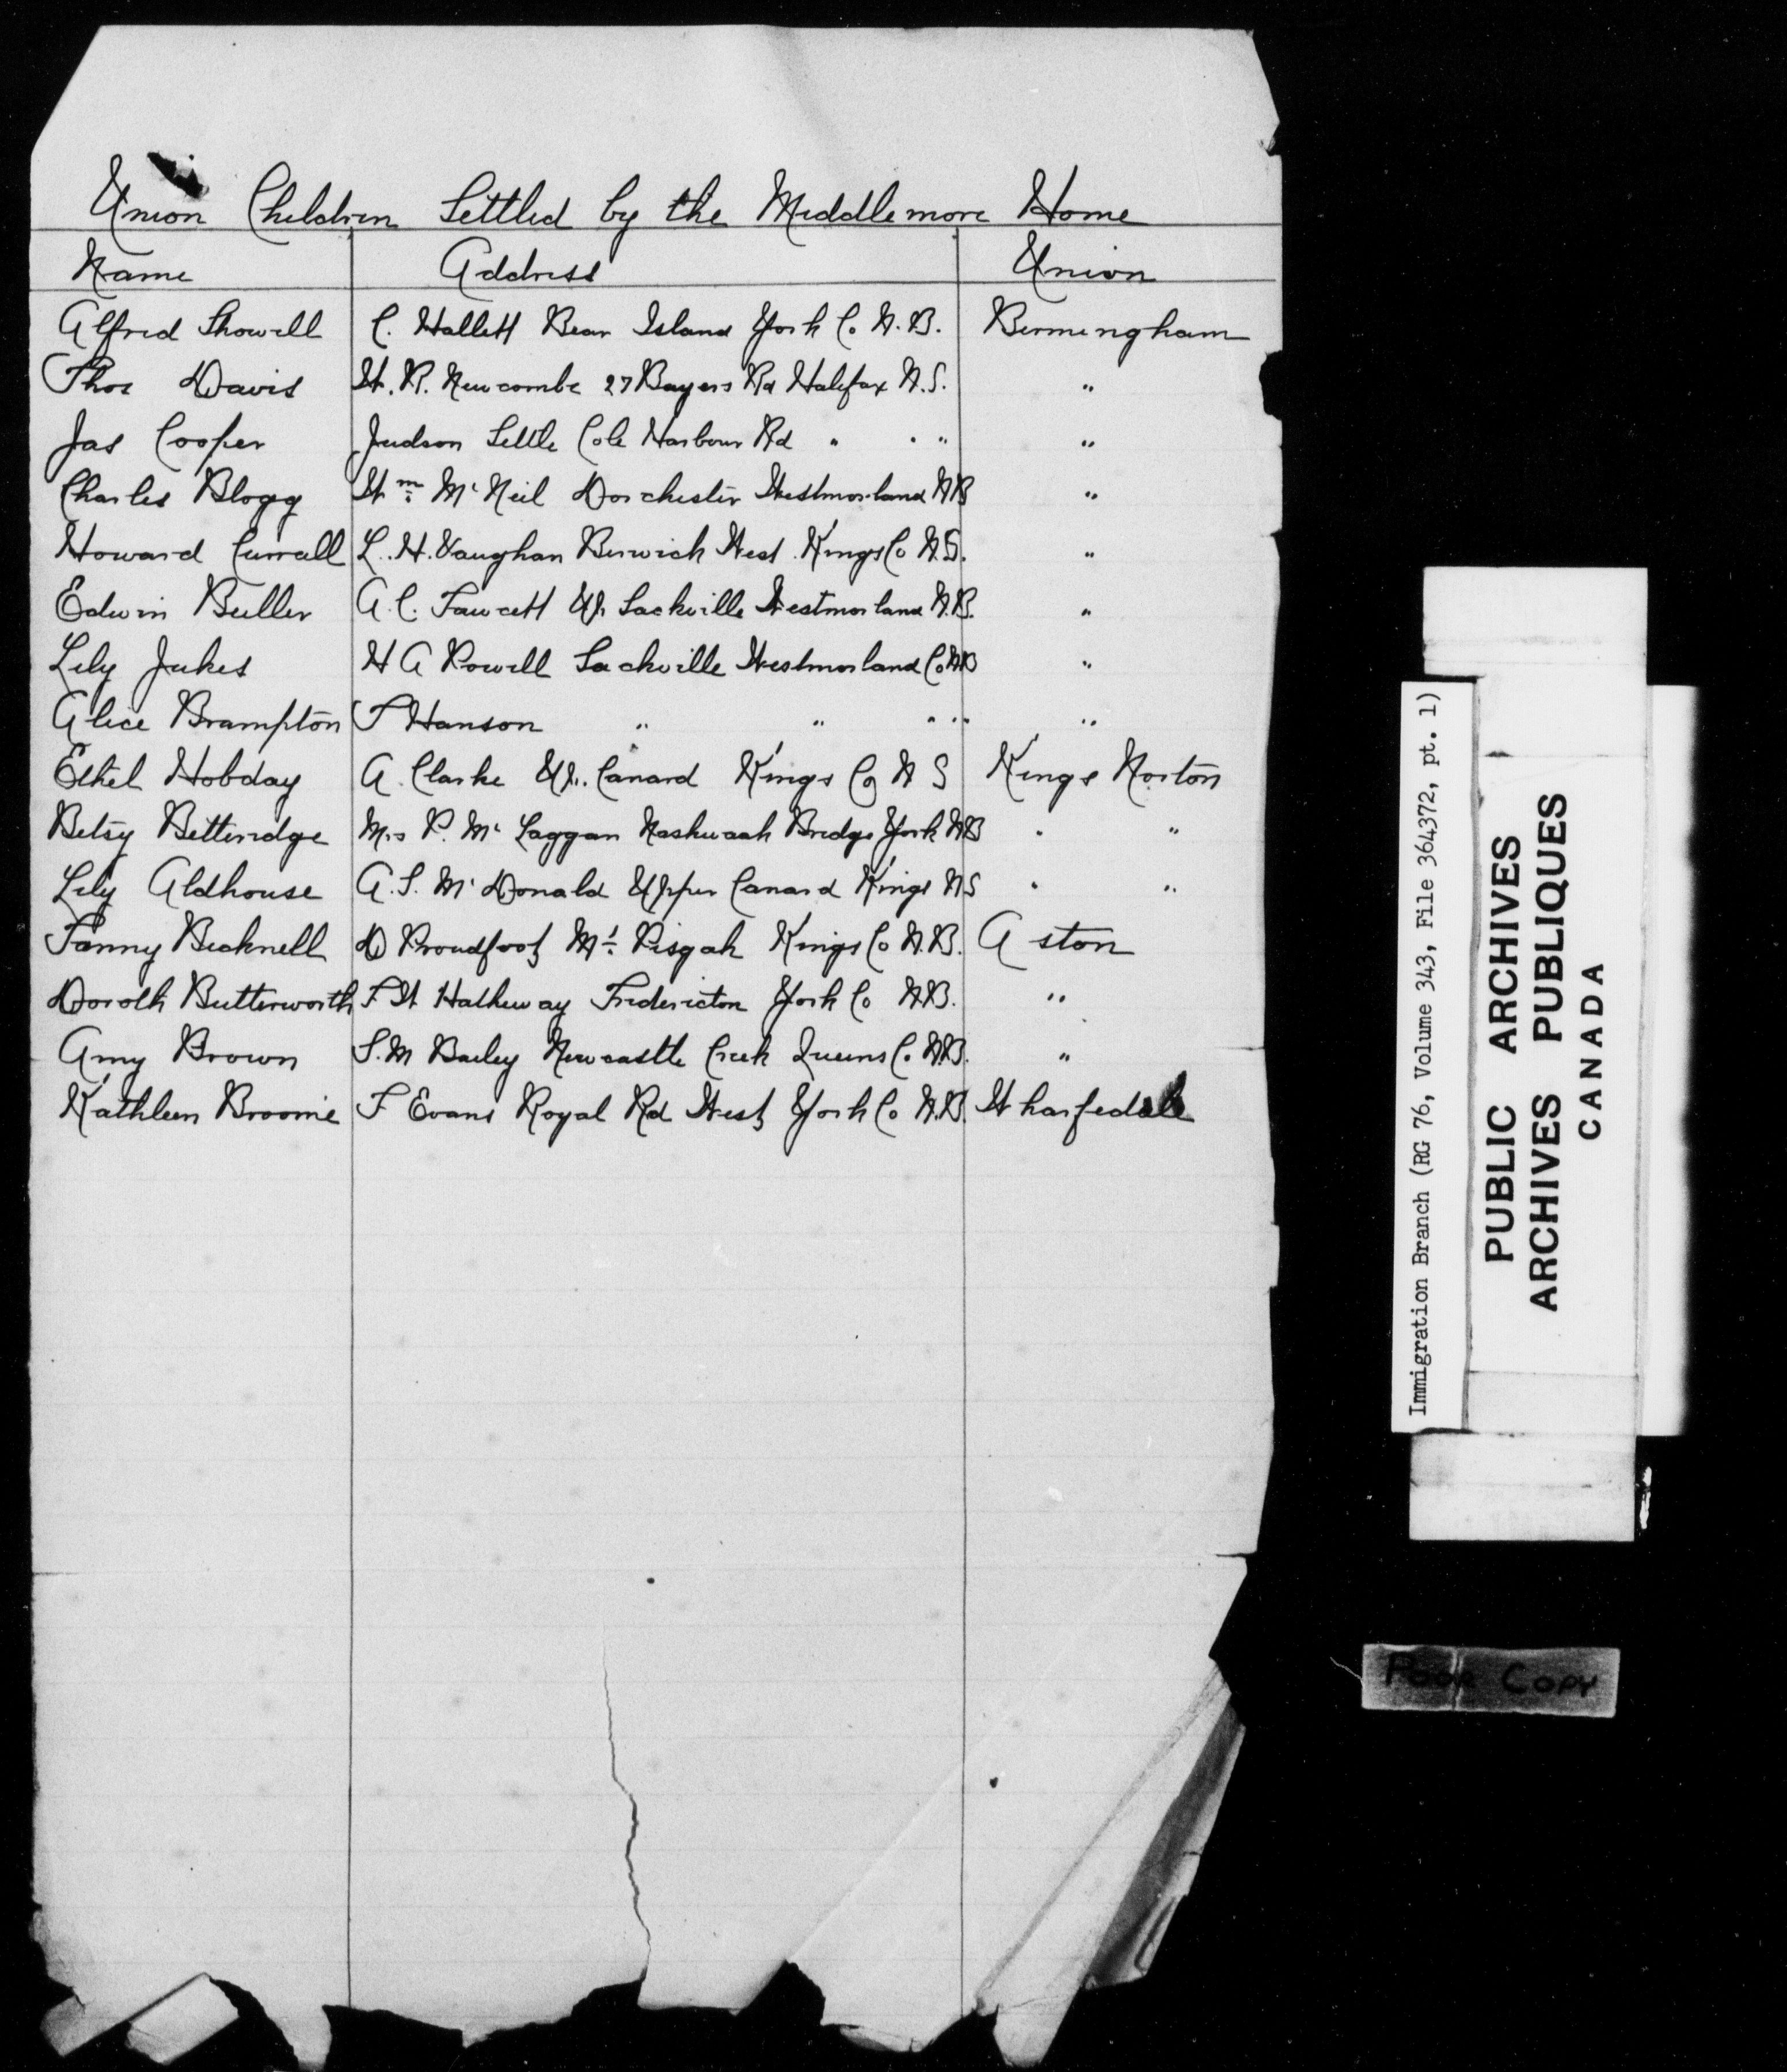 Union Children Settled by the Middlemore Home
Name Address Union
Alfred Showell C. Hallett Bear Island York Co N.B. Birmingham
Thos Davis W. R. Newcombe 27 Bayers Rd Halifax N.S. "
Jas Cooper Judson Settle Cole Harbour Rd " " " "
Charles Blogg Wm McNeil Dorchester Westmorland NB "
Howard Currall L. H. Vaughan Berwick West Kings Co N.S. "
Edwin Buller A. C. Fawcett Up Sackville Westmorland N.B. "
Lily Jukes H A Powell Sackville Westmorland Co NB "
Alice Brampton T Hanson " " " " "
Ethel Hobday A. Clarke Up. Canard Kings Co N S Kings Norton
Betsy Betteridge Mrs P. Mc Laggan Nashwaak Bridge York NB " "
Lily Aldhouse A. S. Mc Donald Upper Canard Kings NS " "
Fanny Bicknell D Proudfoot Mt Pisgah Kings Co N.B. Aston
Doroth Butterworth F W Hatheway Fredericton York Co N.B. "
Amy Brown S. M Bailey Newcastle Creek Queens Co N.B. "
Kathleen Broome F Evans Royal Rd West York Co N.B. Wharfedale
Immigration Branch (RG 76, Volume 343, File 364372, pt. 1)
PUBLIC ARCHIVES
ARCHIVES PUBLIQUES
CANADA
Poor Copy